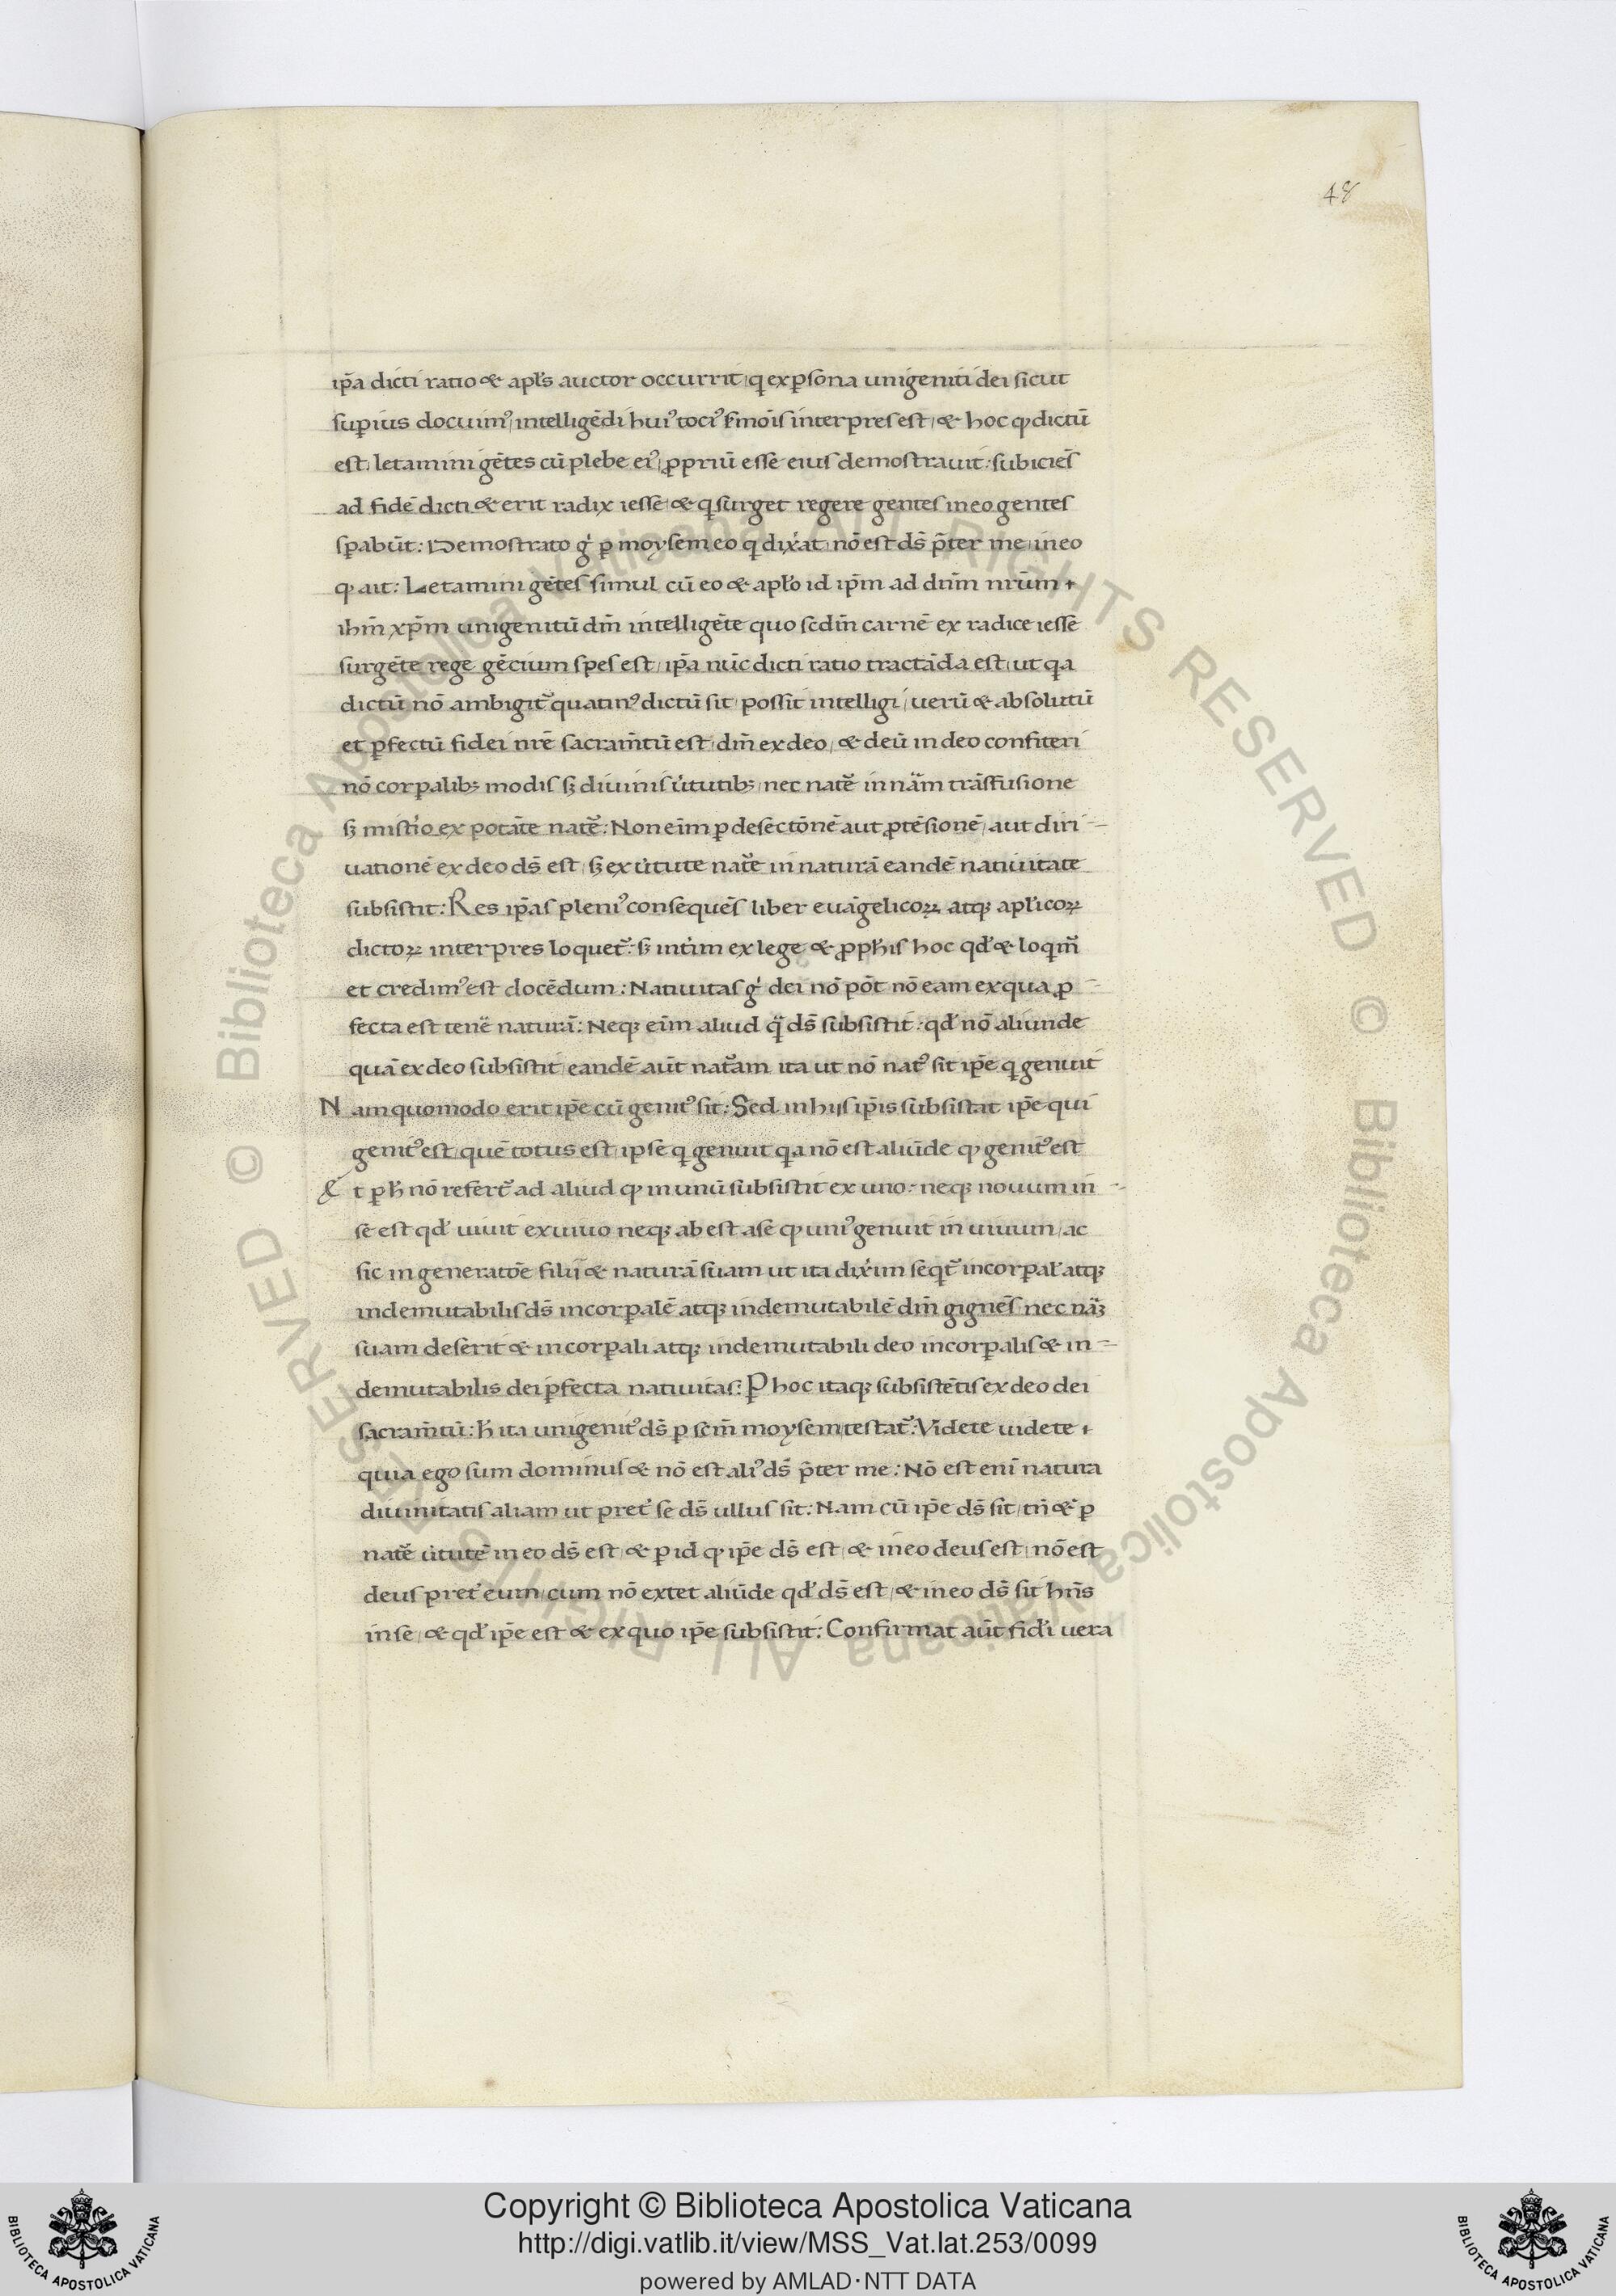 48
ip̄a dicti ratio & apl̄s auctor occurrit, q ex ꝑsona unigeniti dei sicut
suꝑius docuim᾿ intelligēdi hui᾿ toci᾿ s̄mōis interpres est, & hoc ꝙ dictū
est, letamini gētes cū plebe ei᾿, ꝓpriū esse eius demostrauit: subiciēs
ad fidē dicti & erit radix iesse, & q surget regere gentes in eo gentes
sꝑabūt: Demostrato gͥ ꝑ moysem eo q dix̓at, nō est ds̄ p̄ter me, in eo
ꝙ ait: Letamini gētes simul cū eo & apl̄o id ip̄m ad dn̄m nr̄um
ihm̄ xp̄m unigenitū dm̄ intelligēte quo scdm̄ carnē ex radice iesse
surgēte rege gēcium spes est, ip̄a nūc dicti ratio tractāda est, ut qa
dictū nō ambigit᷑ quatin᾿ dictū sit, possit intelligi, uerū & absolutū
et ꝑfectū fidei nr̄e sacram̄tū est, dm̄ ex deo, & deū in deo confiteri
nō corꝑalibꝫ modis sꝫ diuinis u̓tutibꝫ, nec nat᷑e in nāͣm trāsfusione
sꝫ mist̓io ex potāte nat᷑e: Non eim̄ ꝑ desectōnē aut ꝓtēsionē, aut diri-
uationē ex deo ds̄ est, sꝫ ex u̓tute nat᷑e in naturā eandē natiuitate
subsistit: Res ip̄as pleni᾿ consequēs liber euāgelicoꝝ atqꝫ apl̄icoꝝ
dictoꝝ interpres loquet᷑: sꝫ int̓im ex lege & ꝓph̄is hoc qd̓ & loqm᷑
et credim᾿ est docēdum: Natiuitas gͥ dei nō pōt nō eam ex qua ꝓ-
fecta est tener̄ naturā: Neqꝫ eim̄ aliud qͣ ds̄ subsistit: qd̓ nō aliunde
quā ex deo subsistit, eandē aūt nat᷑am, ita ut nō nat᾿ sit ip̄e q genuit
Nam quomodo erit ip̄e cū genit᾿ sit: Sed in hijs ip̄is subsistat ip̄e qui
genit᾿ est, quē totus est, ipse q genuit qa nō est aliūde ꝙ genit᾿ est
Et ꝑ h̄ nō refert᷑ ad aliud ꝙ in unū subsistit ex uno: neqꝫ nouum in
se est qd̓ uiuit ex uiuo neqꝫ ab est a se ꝙ uni᾿ genuit in uiuum, ac
sic in generatōe filii & naturā suam ut ita dix̓im seqt᷑ incorꝑal̓ atqꝫ
indemutabilis ds̄ incorꝑalē atqꝫ indemutabilē dm̄ gignēs: nec nāͣꝫ
suam deserit & incorꝑali atqꝫ indemutabili deo incorꝑalis & in-
demutabilis dei ꝑfecta natiuitas: Ꝑ hoc itaqꝫ subsistētis ex deo dei
sacram̄tū: h̄ ita unigenit᾿ ds̄ ꝑ scm̄ moysem, testat᷑: Videte uidete
quia ego sum dominus & nō est ali᾿ ds̄ p̄ter me: Nō est eni̅ natura
diuinitatis aliam ut pret̓ se ds̄ ullus sit: Nam cū ip̄e ds̄ sit, tn̄ & ꝑ
nat᷑e u̓tutē in eo ds̄ est, & ꝑ id ꝙ ip̄e ds̄ est, & in eo deus est, nō est
deus pret̓ eum, cum nō extet aliūde qd̓ ds̄ est, & in eo ds̄ sit hn̄s
in se, & qd̓ ip̄e est & ex quo ip̄e subsistit: Confirmat aūt fid̓i uera
© Biblioteca Apostolica Vaticana ALL RIGHTS RESERVED © Biblioteca Apostolica Vaticana ALL RIGHTS RESERVED
Copyright © Biblioteca Apostolica Vaticana
http://digi.vatlib.it/view/MSS_Vat.lat.253/0099
powered by AMLAD·NTT DATA
BIBLIOTECA APOSTOLICA VATICANA
BIBLIOTECA APOSTOLICA VATICANA